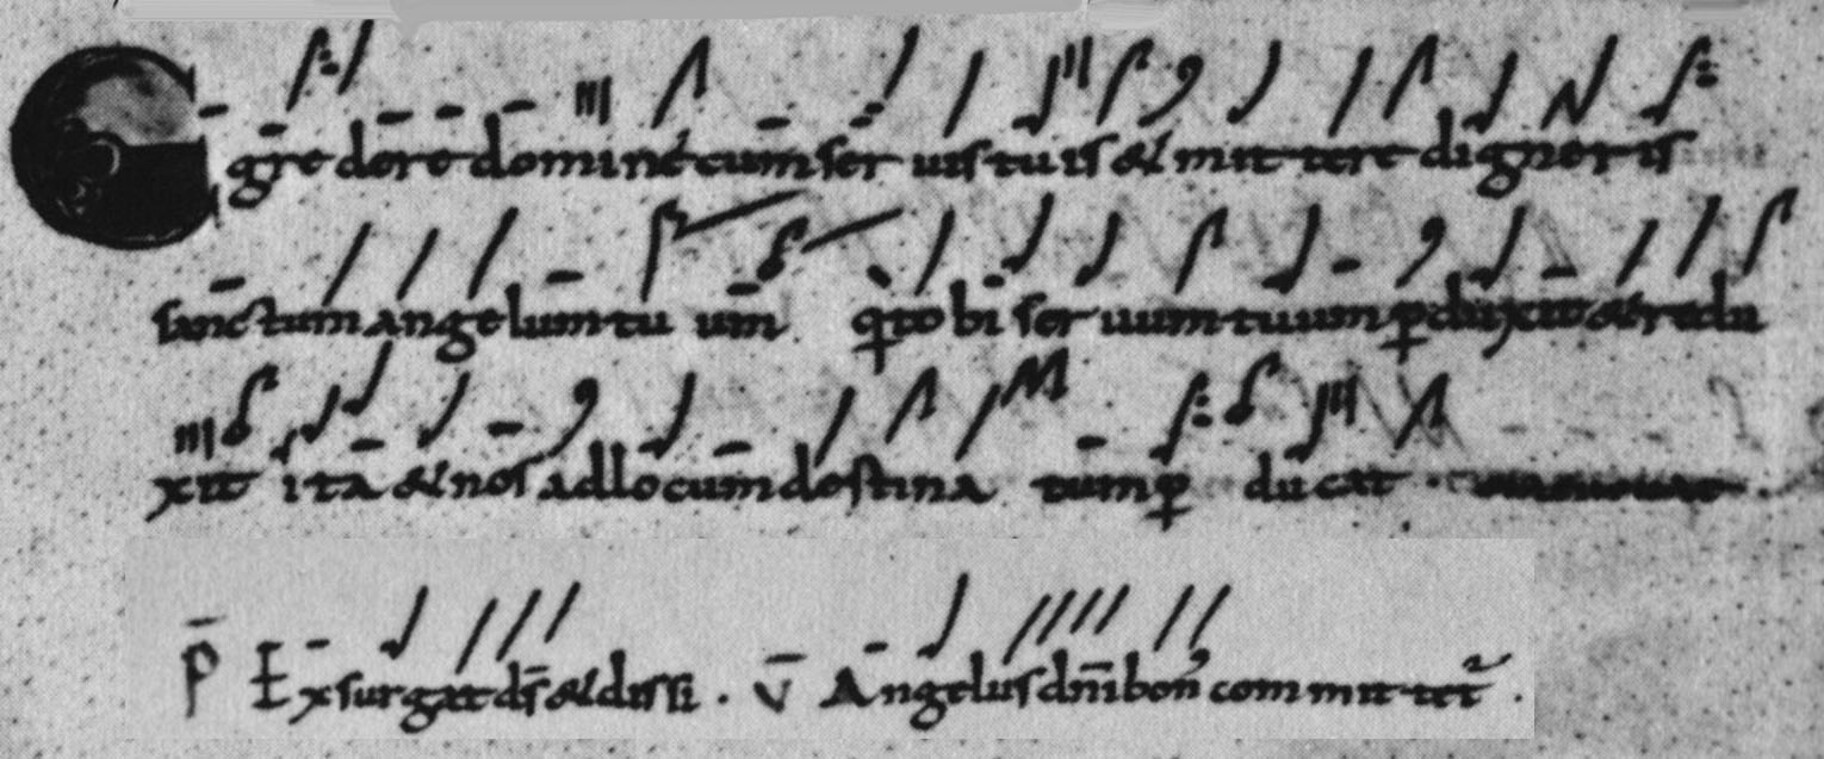 Egr̄e dere domine cum ser uis tuis & mit tere digner is
sanctum angelum tu um̄ q̀ tobi ser uum tuum ꝑduxit & redu
xit ita & nos ad locum destina tum ꝑ ducat
P̄ Exsurgat ds̄ & dissi . v̄ Angelus dn̄i bon com mit tet᷑ .